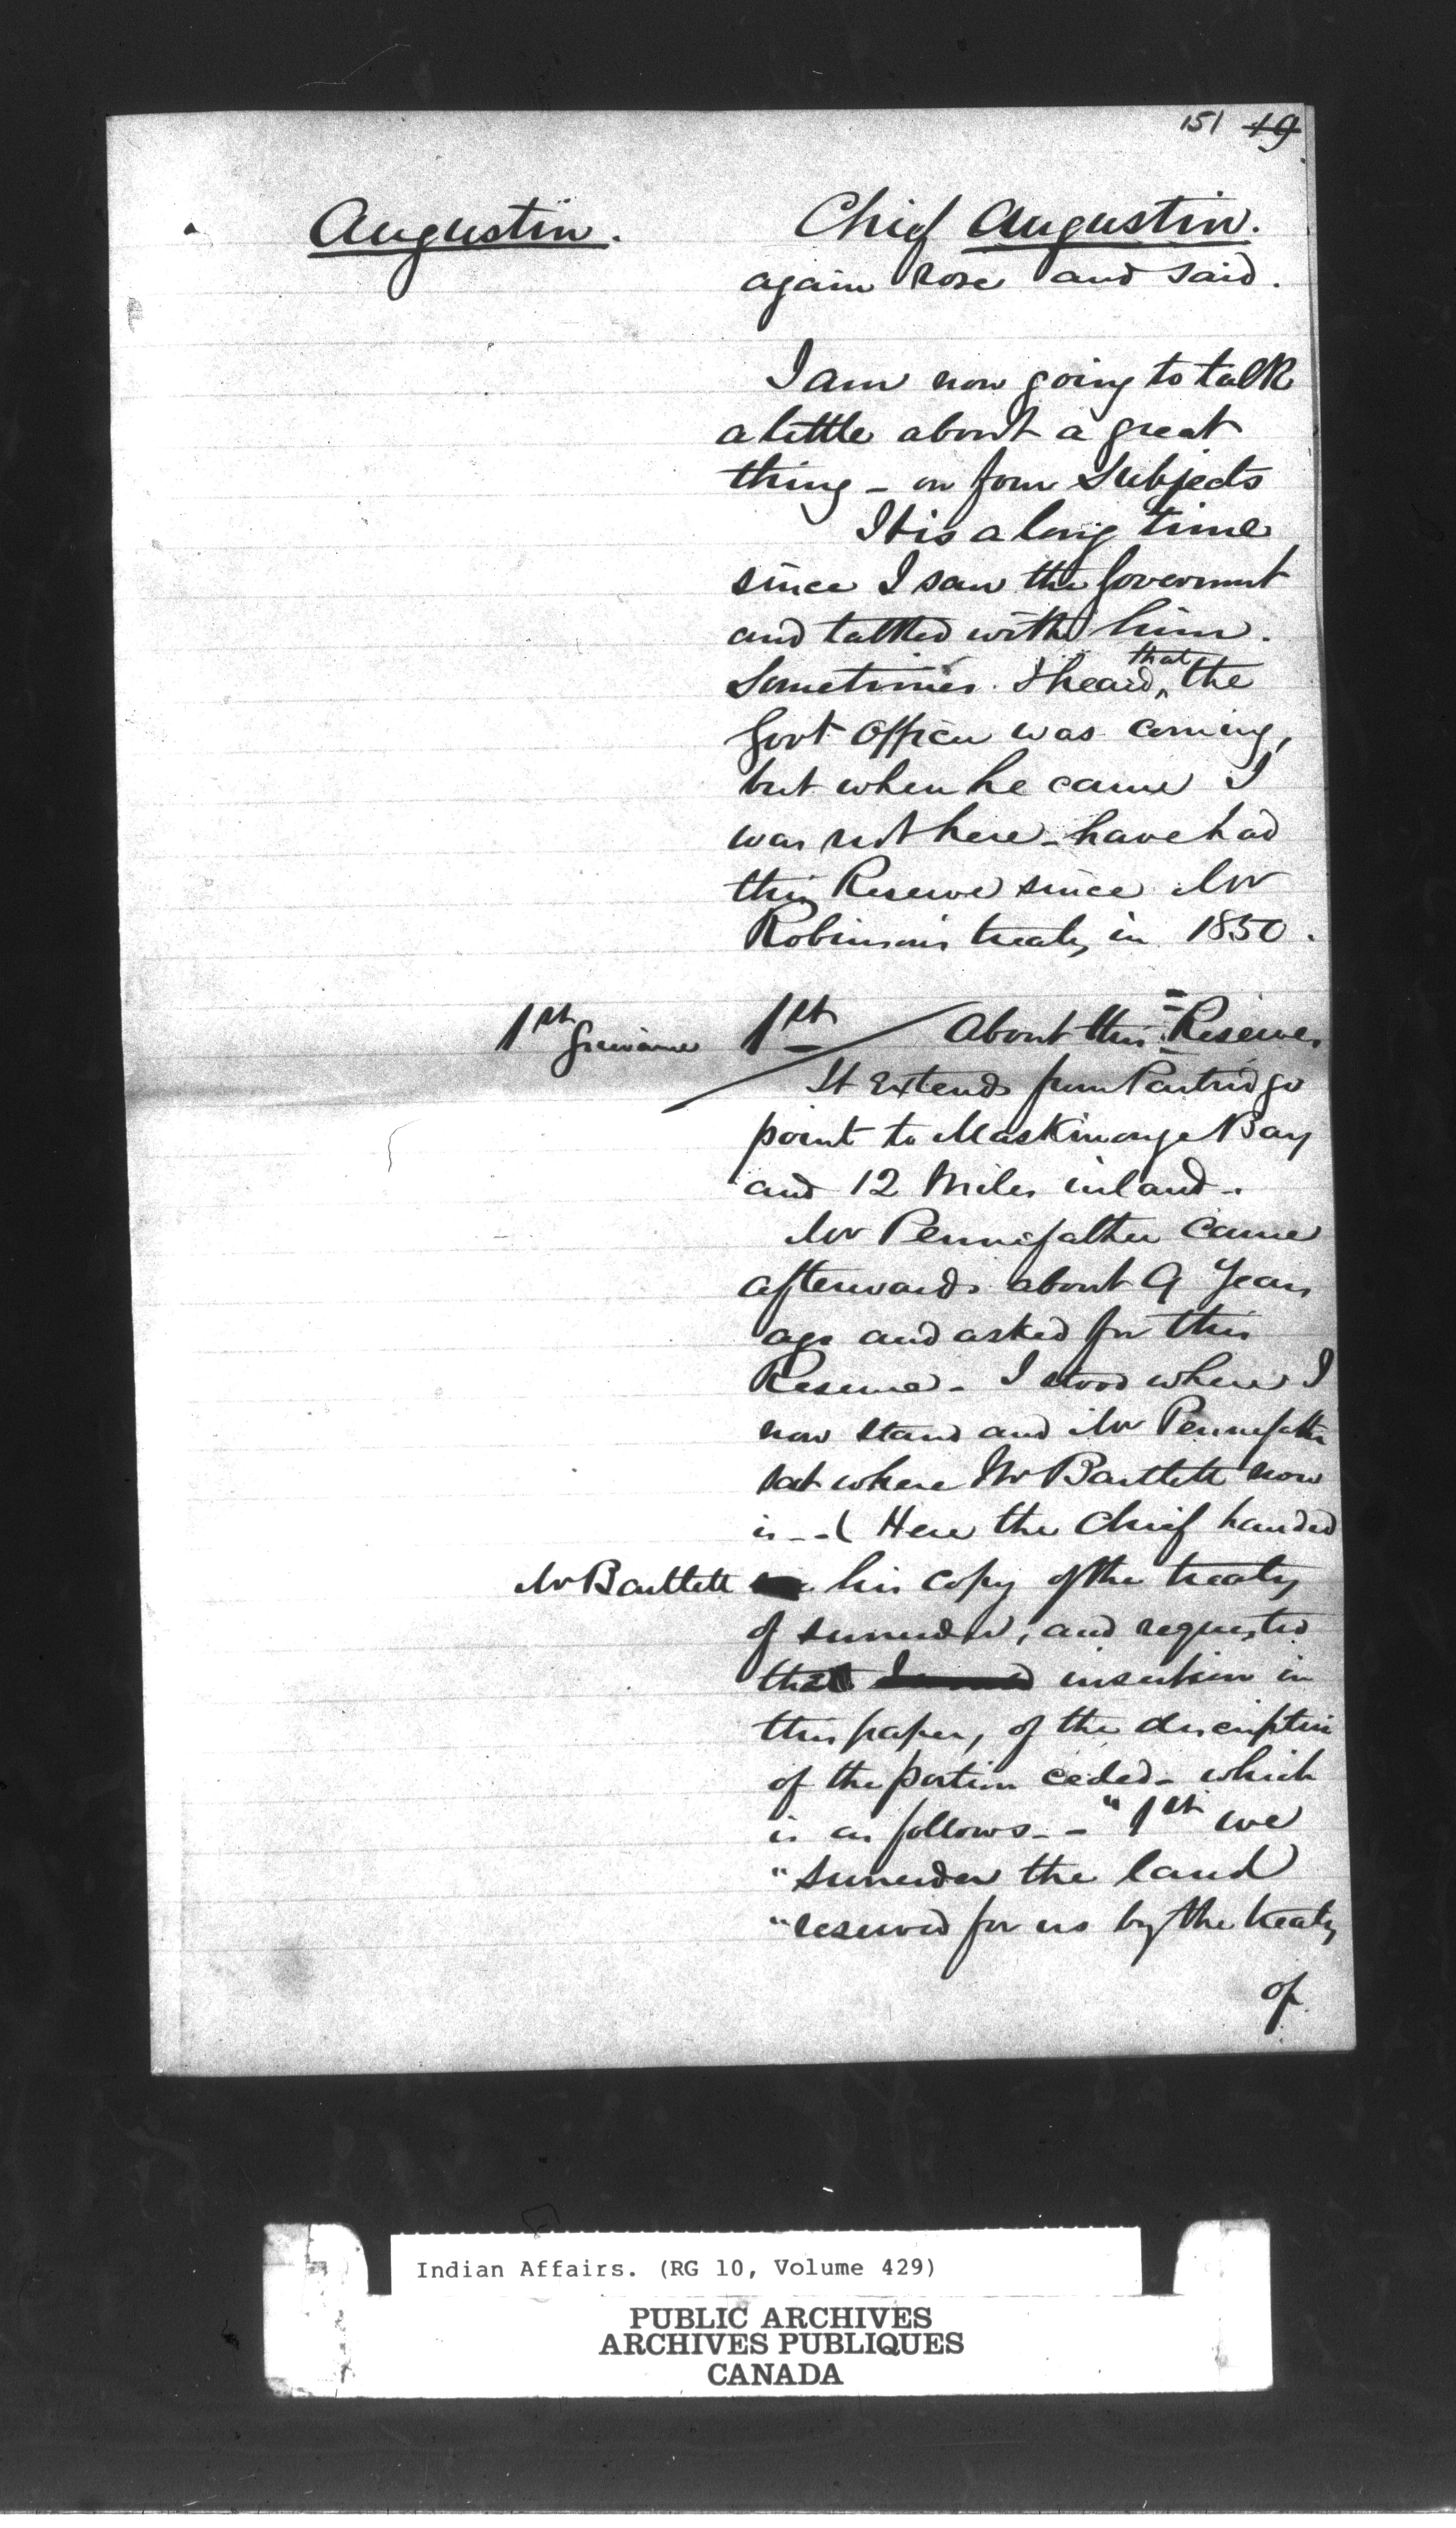 151 19
Augustin.
Chief Augustin.
again rose and said.
I am now going to talk
a little about a great
thing - on four Subjects
It is a long time
since I saw the Goverment
and talked with him.
Sometimes I heard, that the
Govt Officer was coming,
but when he came I
was not here - have had
this Reserve since Mr
Robinson's treaty in 1850.
1st Grievance
1st About this Reserve.
It Extends from Partridge
point to Maskinonge Bay
and 12 Miles inland -
Mr Pennefather came
afterwards about 9 Years
ago and asked for this
Reserve - I stood where I
now stand and Mr Pennefather
sat where Mr Bartlett now
is -- ( Here the Chief handed
Mr Bartlett his copy of the treaty
of surrender, and requested
the insertion in
this paper, of the description
of the portion ceded - which
is as follows -- "1st we
"surrender the land
"reserved for us by the treaty
of
Indian Affairs. (RG 10, Volume 429)
PUBLIC ARCHIVES
ARCHIVES PUBLIQUES
CANADA